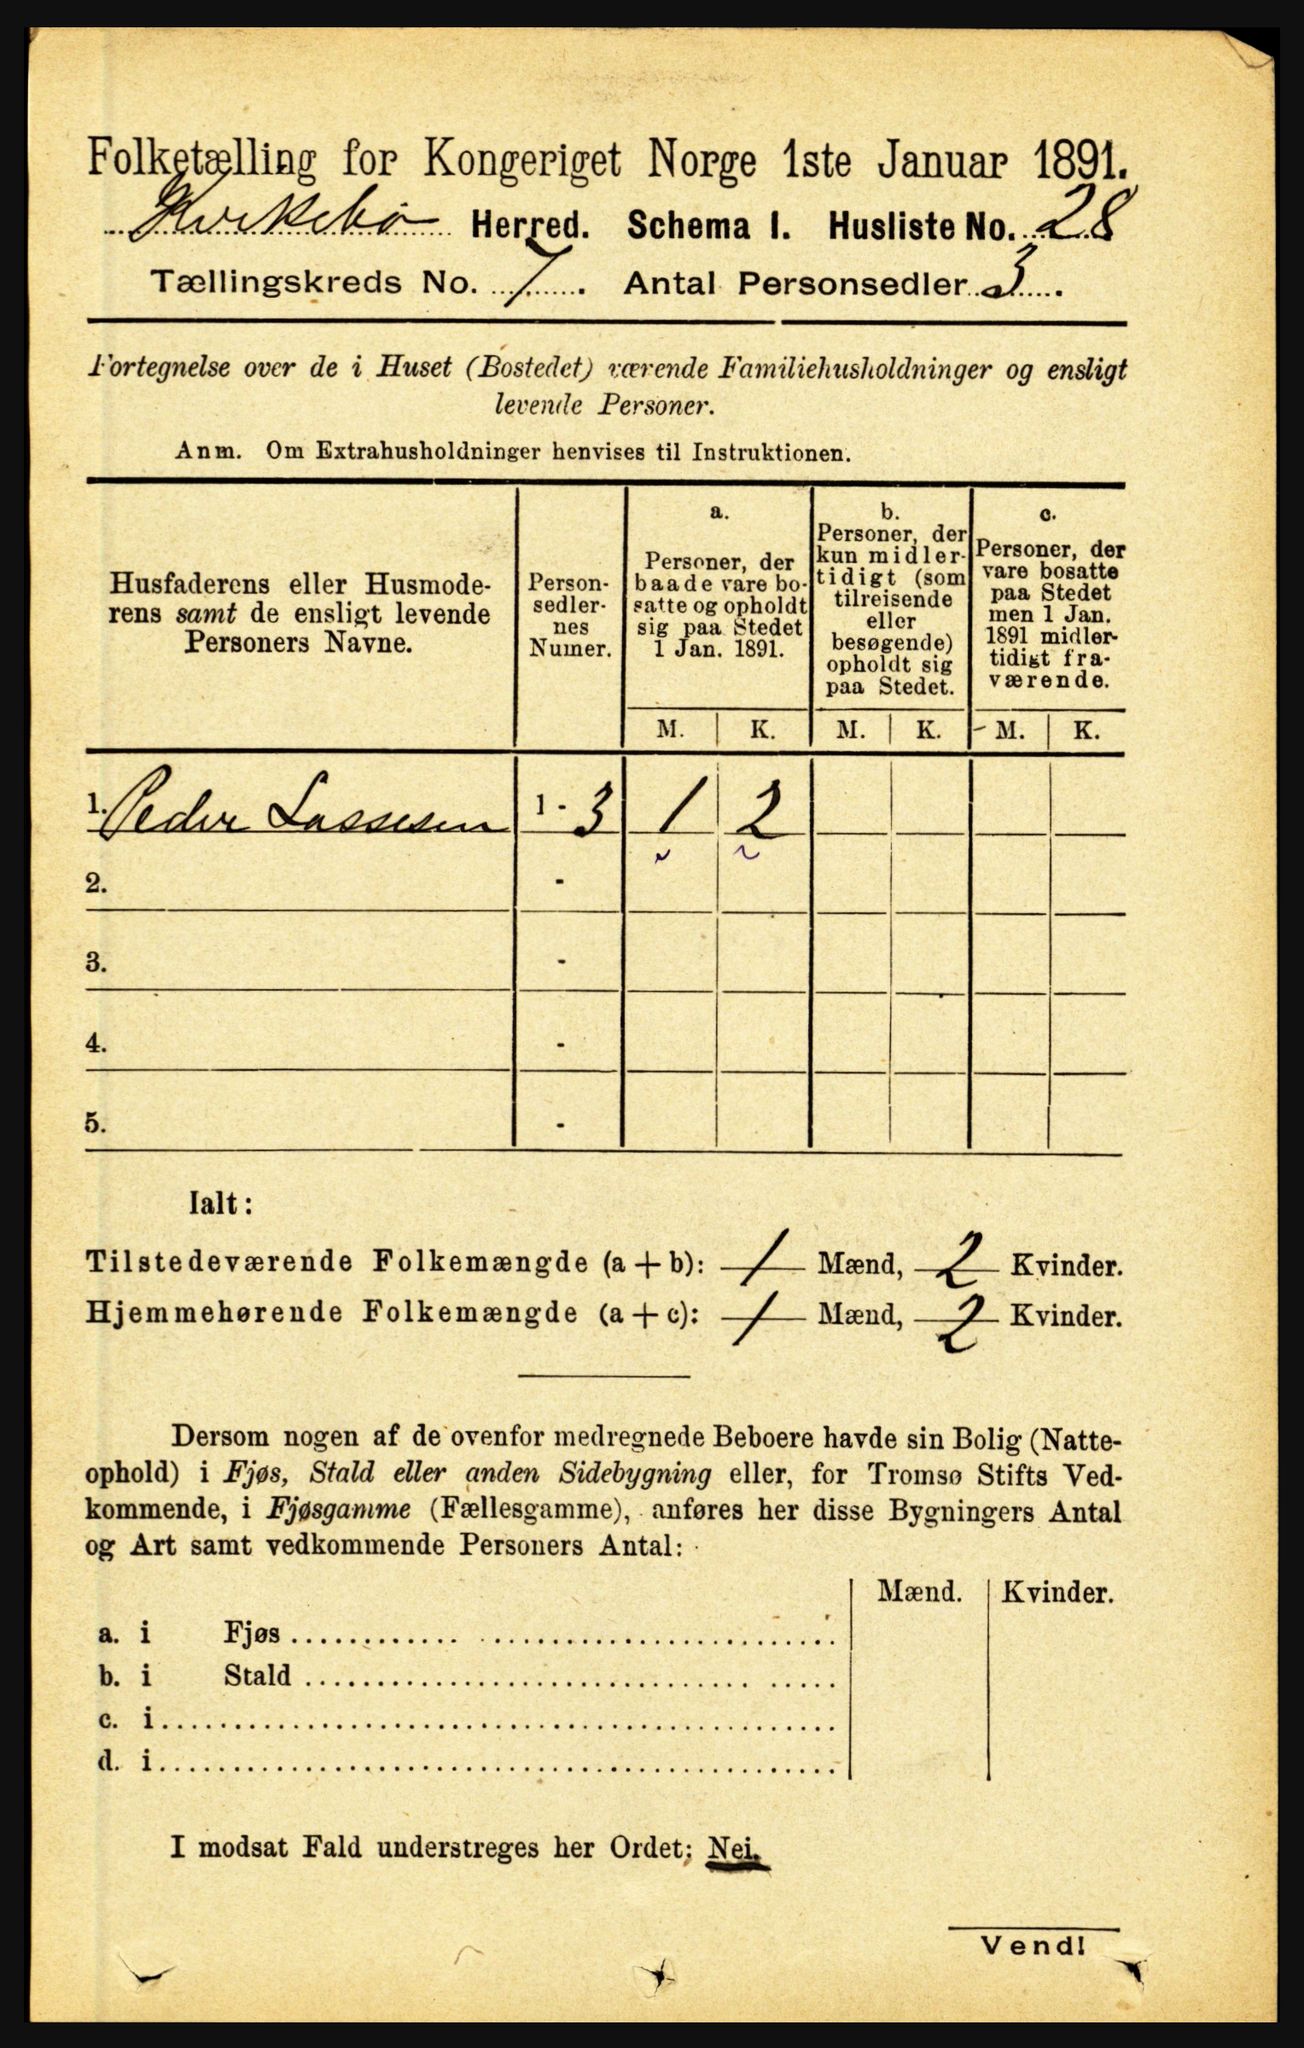 Folketælling for Kongeriget Norge 1ste Januar 1891.
Kirkebø Herred. Schema I. Husliste No. 28
Tællingskreds No. 7. Antal Personsedler 3.
Fortegnelse over de i Huset (Bostedet) værende Familiehusholdninger og ensligt
levende Personer.
Anm. Om Extrahusholdninger henvises til Instruktionen.
Husfaderens eller Husmode-
rens samt de ensligt levende
Personers Navne.
Person-
sedler-
nes
Numer.
a.
Personer, der
baade vare bo-
satte og opholdt
sig paa Stedet
1 Jan. 1891.
b.
Personer, der
kun midler-
tidigt (som
tilreisende
eller
besøgende)
opholdt sig
paa Stedet.
c.
Personer, der
vare bosatte
paa Stedet
men 1 Jan.
1891 midler-
tidigt fra-
værende.
M. K. M. K. M. K.
1. Peder Lassesen 1 - 3 1 2
2. -
3. -
4. -
5. -
Ialt:
Tilstedeværende Folkemængde (a + b): 1 Mænd, 2 Kvinder.
Hjemmehørende Folkemængde (a + c): 1 Mænd, 2 Kvinder.
Dersom nogen af de ovenfor medregnede Beboere havde sin Bolig (Natte-
ophold) i Fjøs, Stald eller anden Sidebygning eller, for Tromsø Stifts Ved-
kommende, i Fjøsgamme (Fællesgamme), anføres her disse Bygningers Antal
og Art samt vedkommende Personers Antal:
Mænd. Kvinder.
a. i Fjøs
b. i Stald
c. i
d. i
I modsat Fald understreges her Ordet: Nei.
Vend!